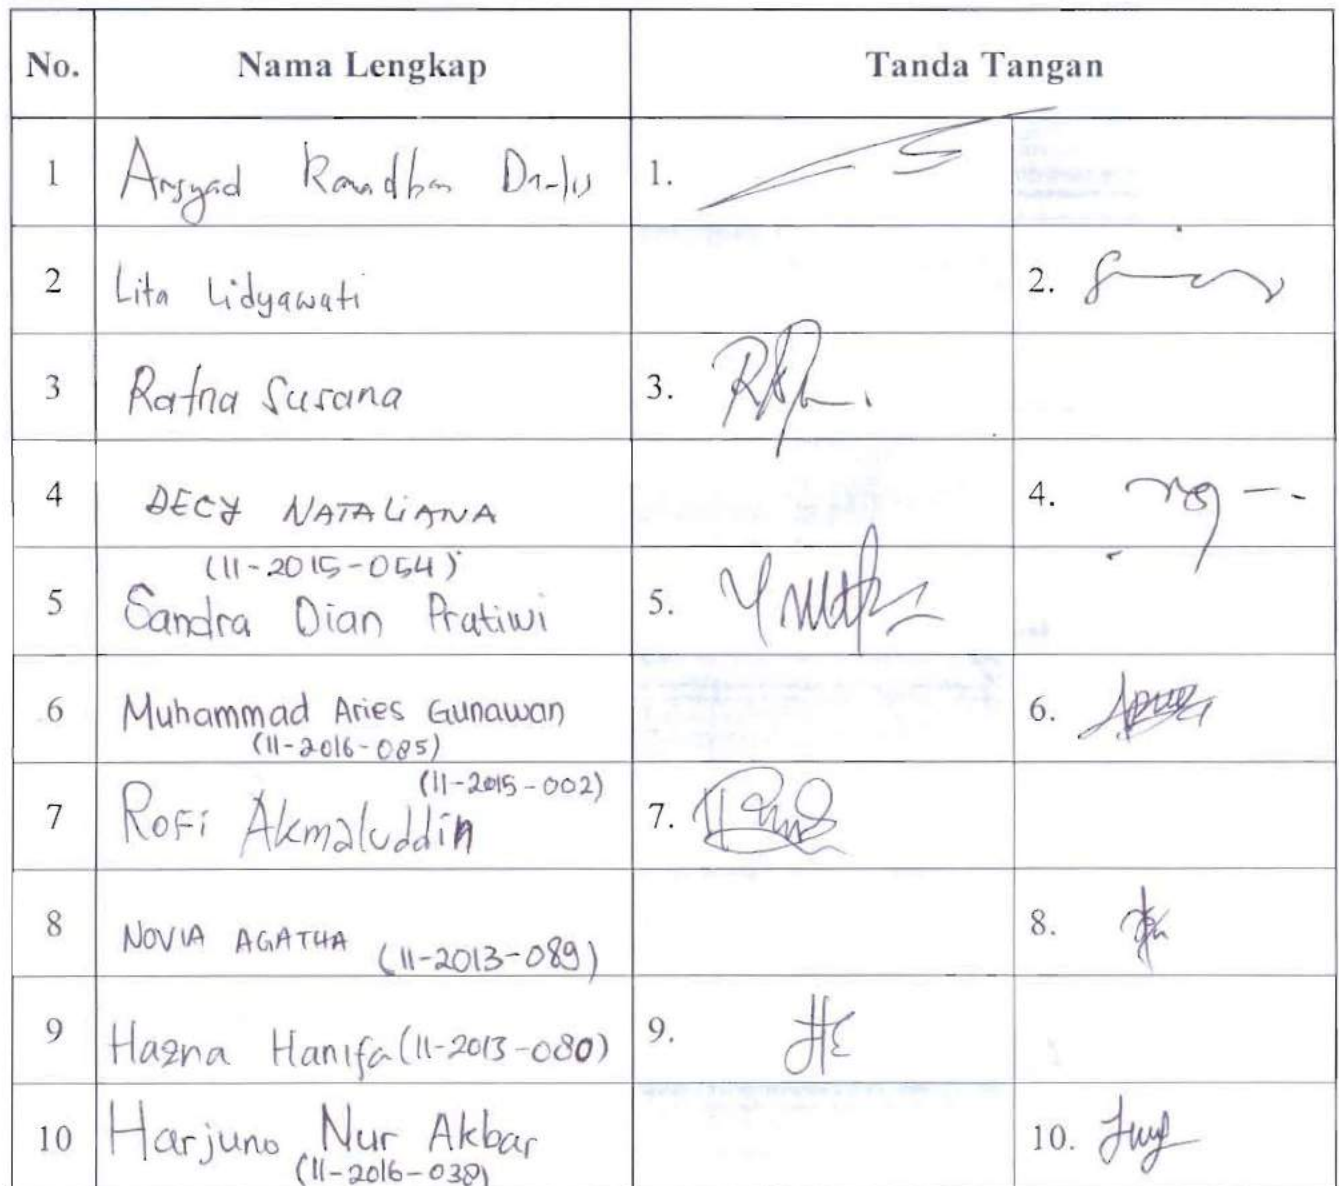 No. Nama Lengkap Tanda Tangan
1 Arsyad Ramdhan Darlis 1.
2 Lita Lidyawati 2.
3 Ratna Susana 3.
4 DECY NATALIANA 4.
(11-2015-054)
5 Sandra Dian Pratiwi 5.
6 Muhammad Aries Gunawan 6.
(11-2016-085)
(11-2015-002)
7 Rofi Akmaluddin 7.
8 NOVIA AGATHA (11-2013-089) 8.
9 Hazna Hanifa (11-2013-080) 9.
10 Harjuno Nur Akbar 10.
(11-2016-038)